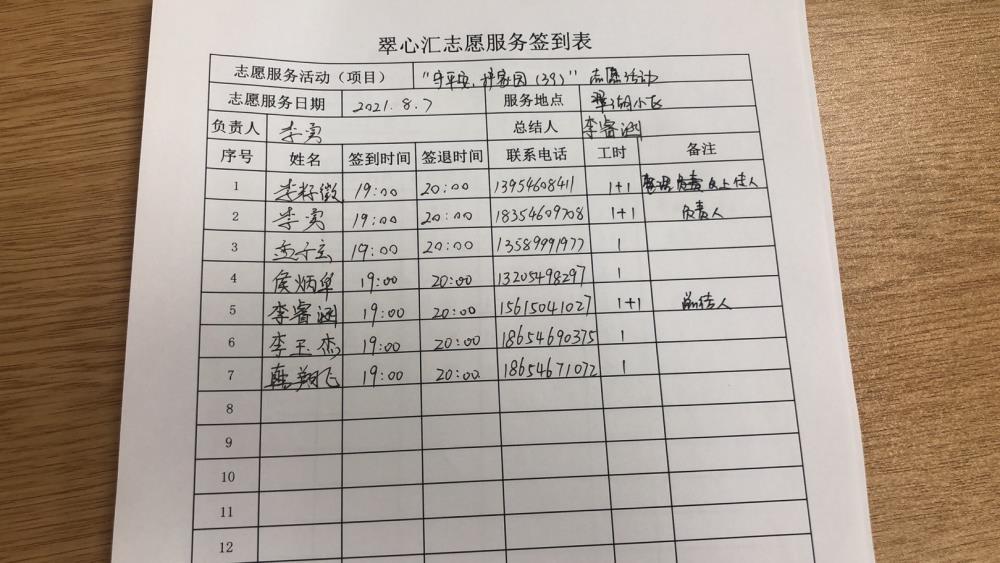 翠心汇志愿服务签到表
志愿服务活动（项目） "守平安，护家园（39）"志愿活动
志愿服务日期 2021.8.7 服务地点 翠湖小区
负责人 李勇 总结人 李睿涵
序号 姓名 签到时间 签退时间 联系电话 工时 备注
1 19:00 20:00 13954608411 1+1 负责 上传人
2 李勇 19:00 20:00 18354609708 1+1 负责人
3 孟子玄 19:00 20:00 13589991977 1
4 侯炳卓 19:00 20:00 13205498297 1
5 李睿涵 19:00 20:00 15615041027 1+1
6 李玉杰 19:00 20:00 18654690375 1
7 韩翔飞 19:00 20:00 18654671072 1
8
9
10
11
12